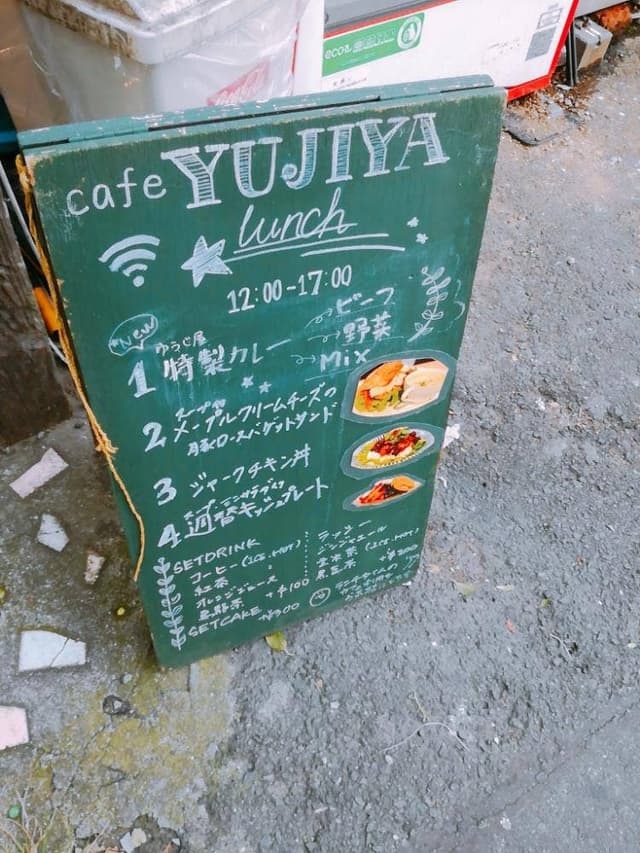 eco
cafe YUJIYA
lunch
12:00-17:00
New
ゆうじ屋
1 特製カレー
ビーフ
野菜
Mix
スープ付
2 メープルクリームチーズの
豚ロースバゲットサンド
3 ジャークチキン丼
4 週替キッシュプレート
SETDRINK
コーヒー (ICE.HOT)
紅茶 〃
オレンジジュース
烏龍茶 +¥100
ラッシー
ジンジャエール
(ICE.HOT)
黒豆茶 +¥200
SETCAKE +¥300